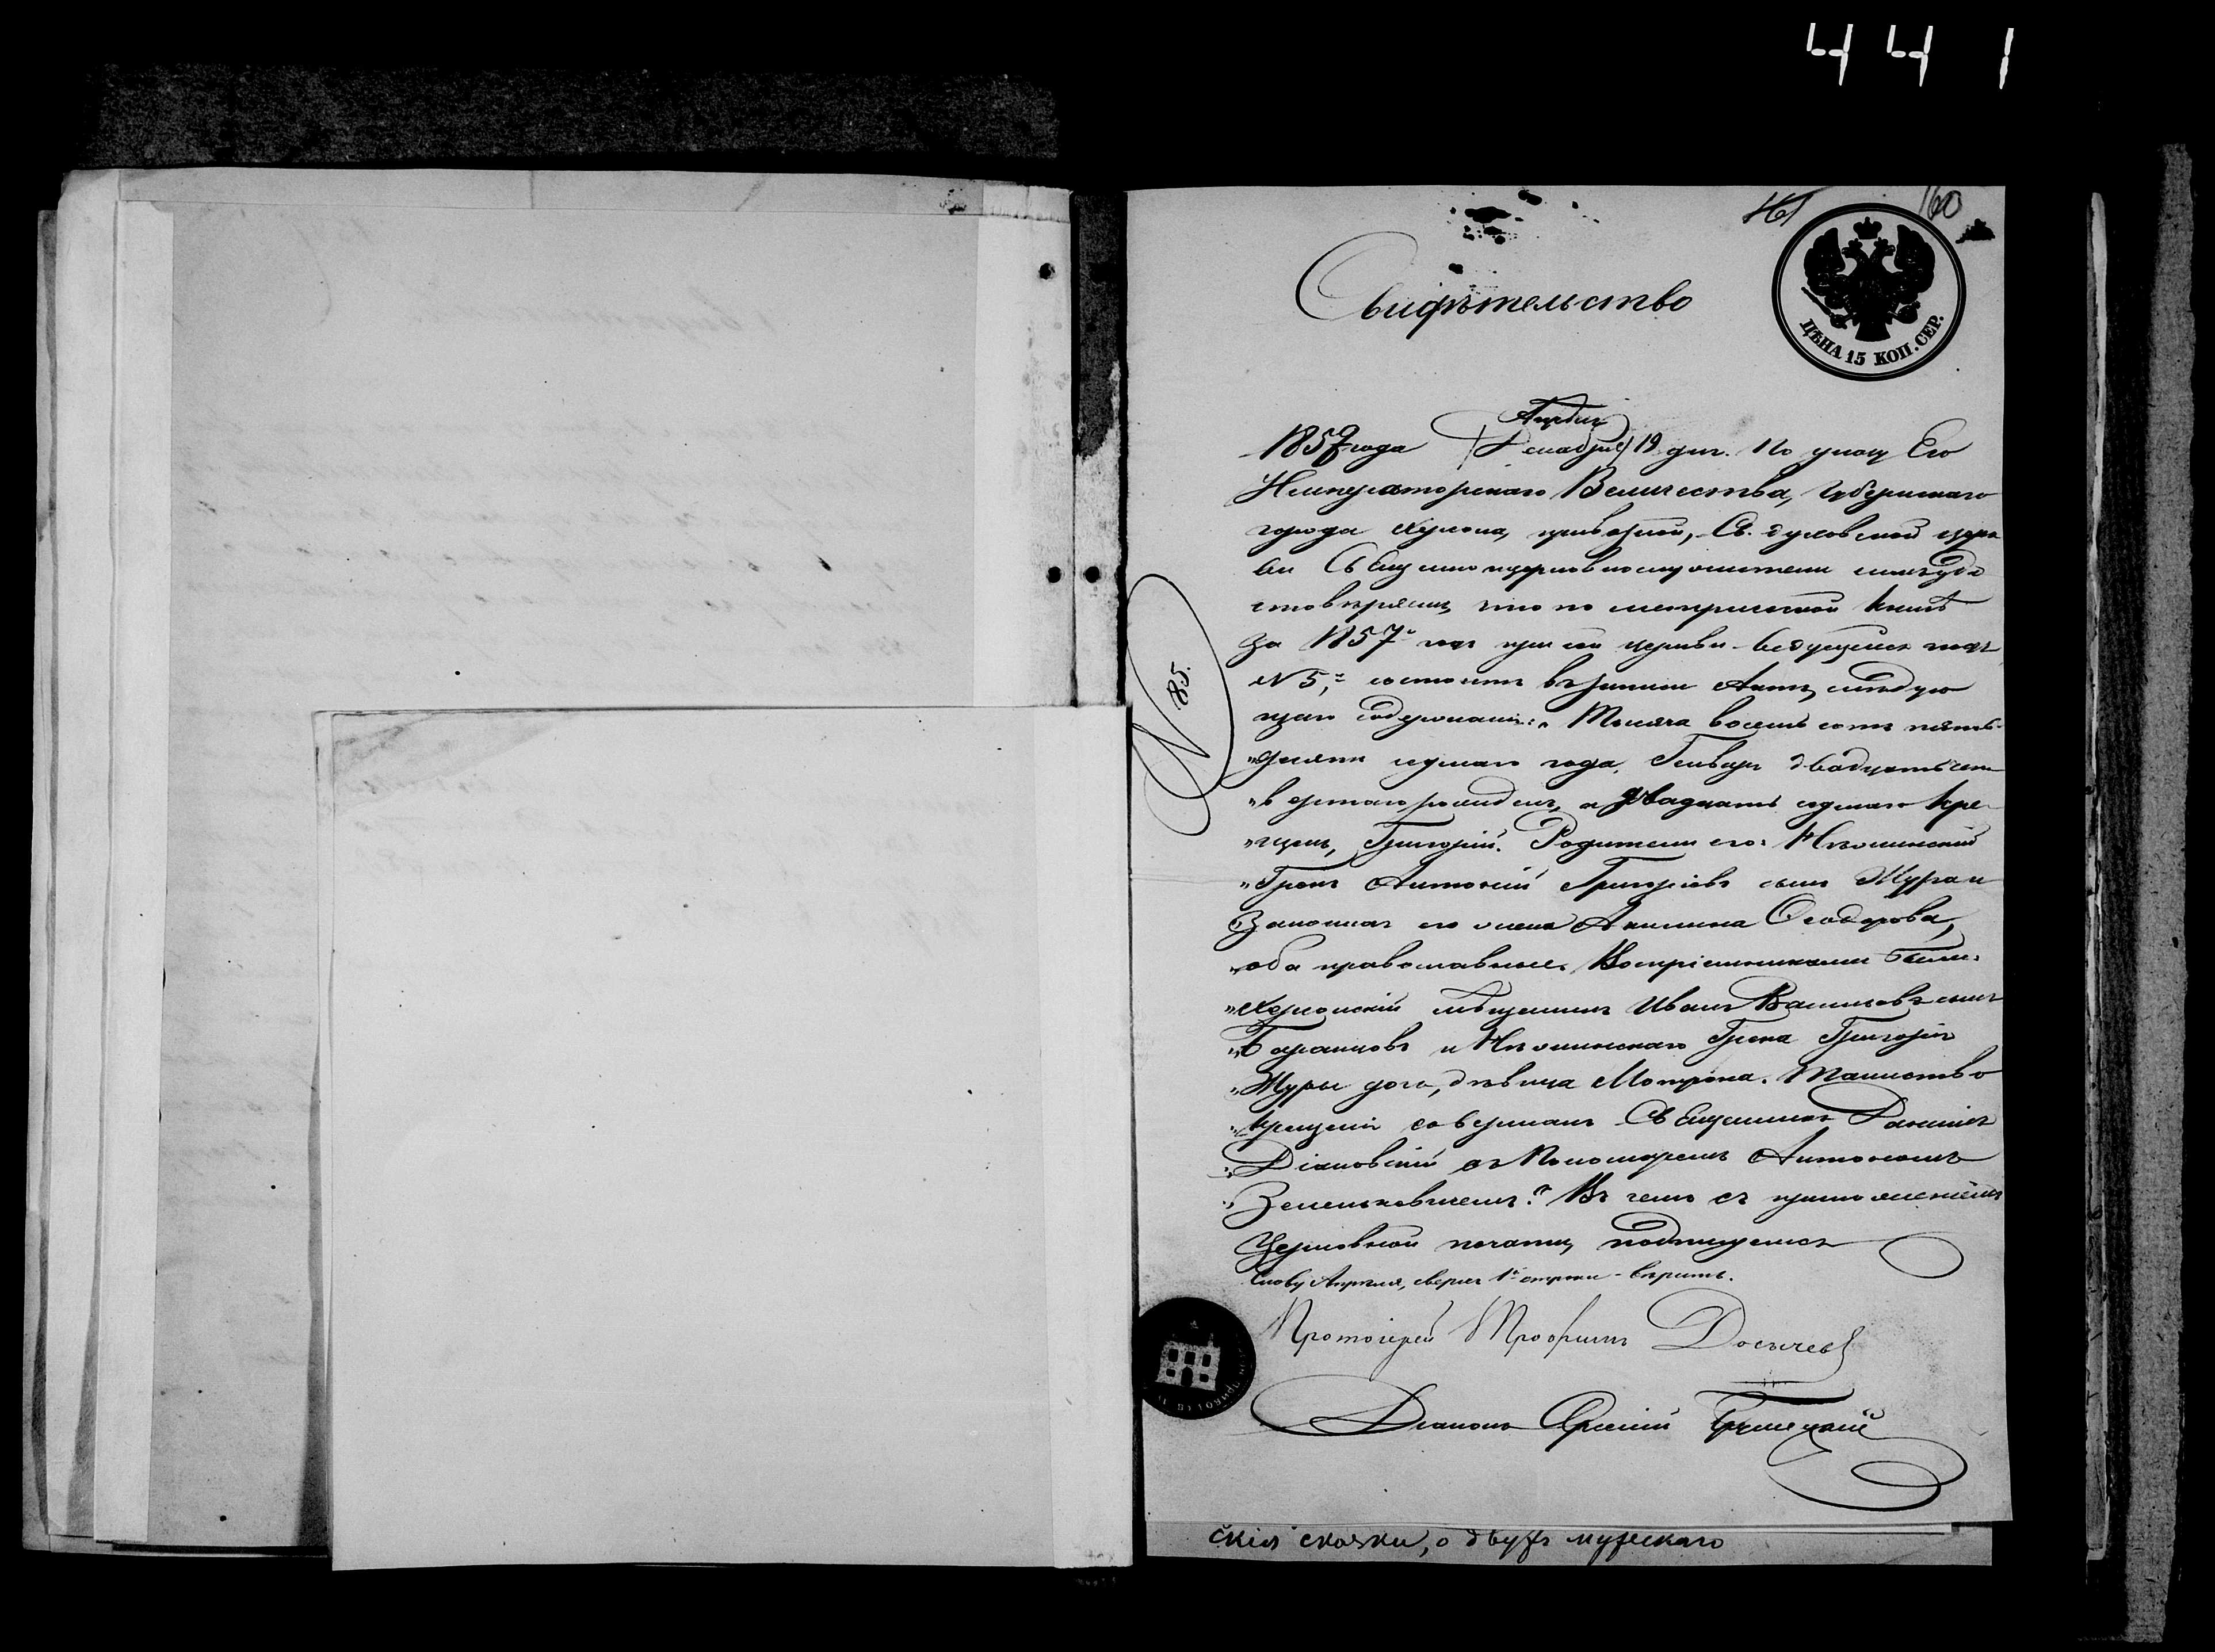 441
161
160
Свидѣтельство
ЦѢНА 15 КОП. СЕР.
Апрѣля
1857 года (Декабря) 19 дня. По указу Его
Императорскаго Величества, Губернскаго
города Херсона, Св. Духовской церк
ви Священноцерковнослужители симъ удо
стовѣряемъ, что по метрической книгѣ
за 1857й годъ при сей церкви ведущейся подъ
N 5, состоитъ въ записи Актъ, слѣдую
щаго содержанія: „Тысяча восемь сотъ пять
„десятъ седьмаго года, Генваря двадцать чет
„вертаго рожденъ, а двадцать седьмаго кре
„щенъ, Григорій. Родители его: Нѣжинскій
„Грекъ Антоній Григорьевъ сынъ Журa и
законная его жена Акилина Ѳеодорова,
„оба православные. Воспріемниками были:
„Херсонскій мѣщанинъ Иванъ Васильевъ сынъ
„Баранцовъ и Нѣжинскаго Грека Григорія
„Журы дочь, дѣвица Мотрона. Таинство
„крещенія совершалъ Священникъ Даніилъ
„Діаковскій съ Пономаремъ Антономъ
„Зеленкевичемъ." Въ чемъ съ приложеніемъ
Церковной печати, подписуемся
Слову Апрѣля, сверхъ 1й строки - вѣрить.
N 85.
Протоіерей Трофимъ
Діаконъ Арсеній
скія сказки, о двухъ мужескаго